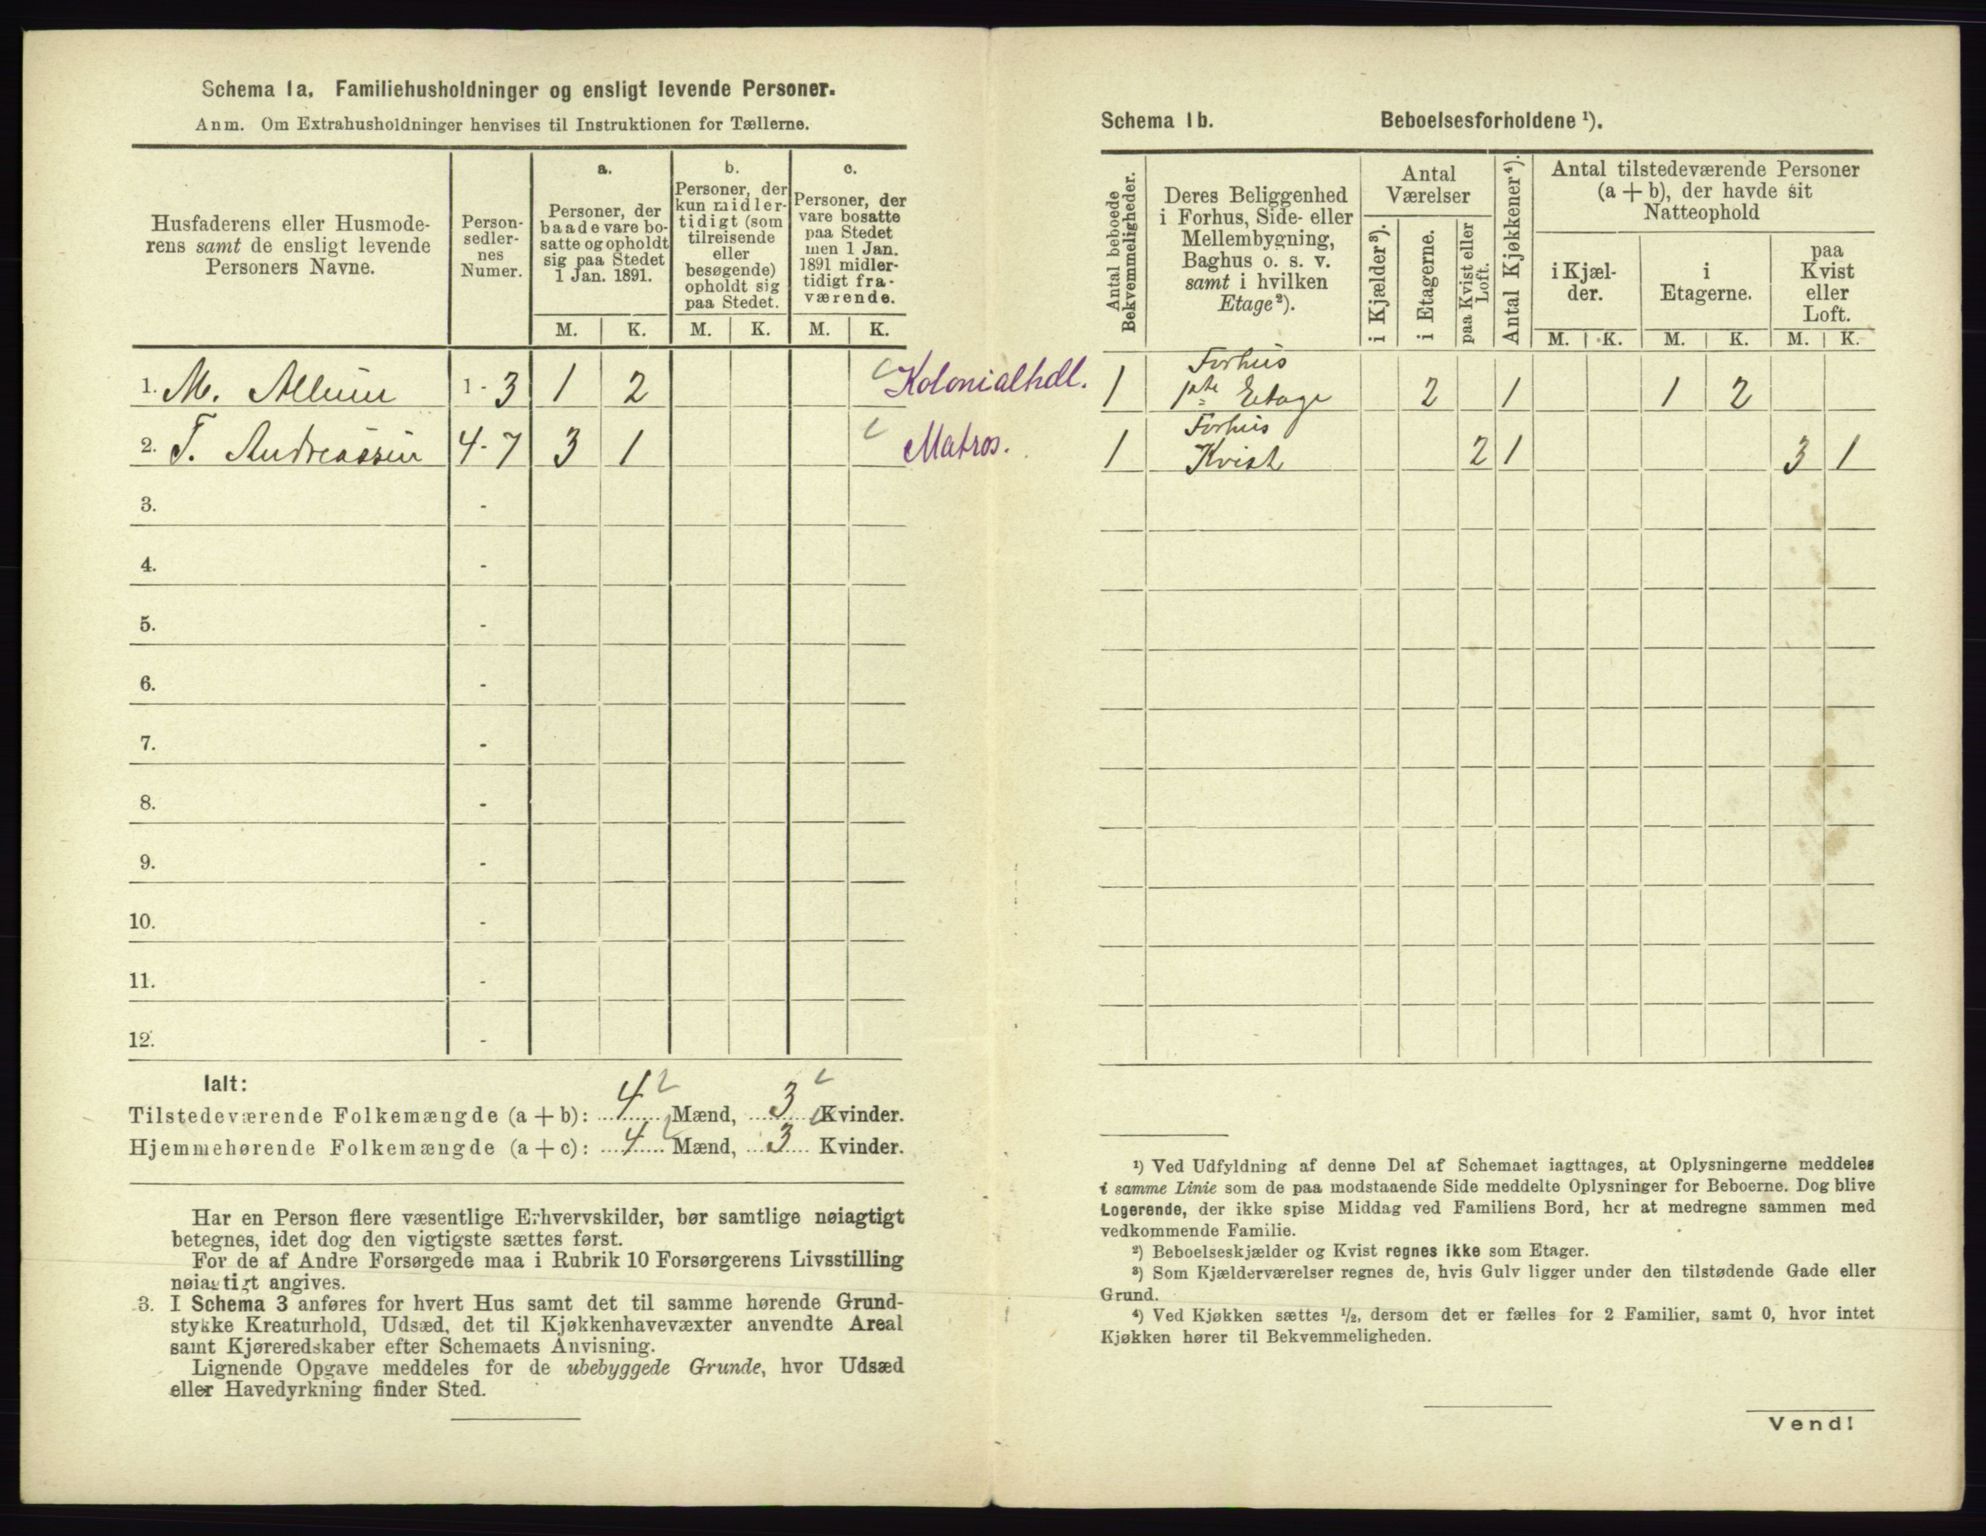 Schema 1a. Familiehusholdninger og ensligt levende Personer.
Anm. Om Extrahusholdninger henvises til Instruktionen for Tællerne.
Husfaderens eller Husmode-
rens samt de ensligt levende
Personers Navne.
Person-
sedler-
nes
Numer.
a.
Personer, der
baade vare bo-
satte og opholdt
sig paa Stedet
1 Jan. 1891.
M. K.
b.
Personer, der
kun midler-
tidigt (som
tilreisende
eller
besøgende)
opholdt sig
paa Stedet.
M. K.
c.
Personer, der
vare bosatte
paa Stedet
men 1 Jan.
1891 midler-
tidigt fra-
værende.
M. K.
1. M. Allum 1 - 3 1 2 Kolonialhdl.
2. T. Andreassen 4 - 7 3 1 Matros.
3. -
4. -
5. -
6. -
7. -
8. -
9. -
10. -
11. -
12. -
Ialt:
Tilstedeværende Folkemængde (a + b): 4 Mænd, 3 Kvinder.
Hjemmehørende Folkemængde (a + c): 4 Mænd, 3 Kvinder.
Har en Person flere væsentlige Erhvervskilder, bør samtlige nøiagtigt
betegnes, idet dog den vigtigste sættes først.
For de af Andre Forsørgede maa i Rubrik 10 Forsørgerens Livsstilling
nøiagtigt angives.
3. I Schema 3 anføres for hvert Hus samt det til samme hørende Grund-
stykke Kreaturhold, Udsæd, det til Kjøkkenhavevæxter anvendte Areal
samt Kjøreredskaber efter Schemaets Anvisning.
Lignende Opgave meddeles for de ubebyggede Grunde, hvor Udsæd
eller Havedyrkning finder Sted.
Schema 1b. Beboelsesforholdene ¹).
Antal beboede
Bekvemmeligheder.
Deres Beliggenhed
i Forhus, Side- eller
Mellembygning,
Baghus o. s. v.
samt i hvilken
Etage²).
Antal
Værelser
i Kjælder³).
i Etagerne.
paa Kvist eller
Loft.
Antal Kjøkkener⁴).
Antal tilstedeværende Personer
(a + b), der havde sit
Natteophold
i Kjæl-
der.
M. K.
i
Etagerne.
M. K.
paa
Kvist
eller
Loft.
M. K.
Forhus
1 1ste Etage 2 1 1 2
Forhus
1 Kvist 2 1 3 1
¹) Ved Udfyldning af denne Del af Schemaet iagttages, at Oplysningerne meddeles
i samme Linie som de paa modstaaende Side meddelte Oplysninger for Beboerne. Dog blive
Logerende, der ikke spise Middag ved Familiens Bord, her at medregne sammen med
vedkommende Familie.
²) Beboelseskjælder og Kvist regnes ikke som Etager.
³) Som Kjælderværelser regnes de, hvis Gulv ligger under den tilstødende Gade eller
Grund.
⁴) Ved Kjøkken sættes ½, dersom det er fælles for 2 Familier, samt 0, hvor intet
Kjøkken hører til Bekvemmeligheden.
Vend!